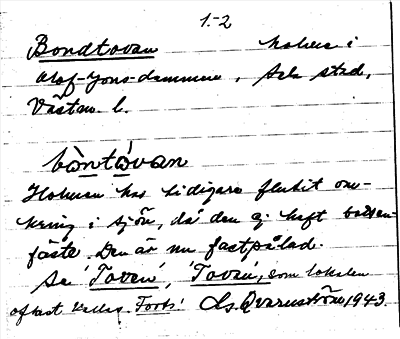 1.-2
Bondtovan holme i
Olof-Jons-dammen, Sala stad,
Västm. l.
bòntòvan
Holmen har tidigare flutit om-
kring i sjön, då den ej haft botten-
fäste. Den är nu fastpålad.
Se 'Toven', 'Tovan', som lokalen
oftast kallas. Forts! Ls. Qvarnström 1943.